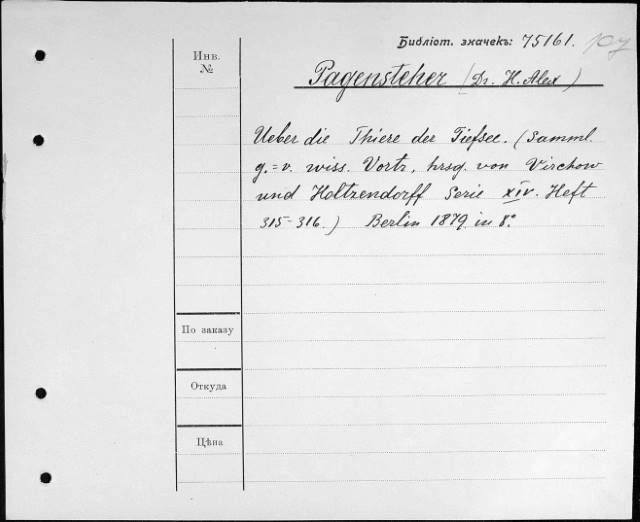 Библіот. значекъ: 75161.
Инв. №
Pagensteher (Dr. H. Alex)
Ueber die Thiere der Tiefsee. (Samml.
g.=v. wiss. Vortr, hrsg. von Virchow
und Holtzendorff Serie XIV. Heft
315-316.) Berlin 1879 in 8°
По заказу
Откуда
Цѣна